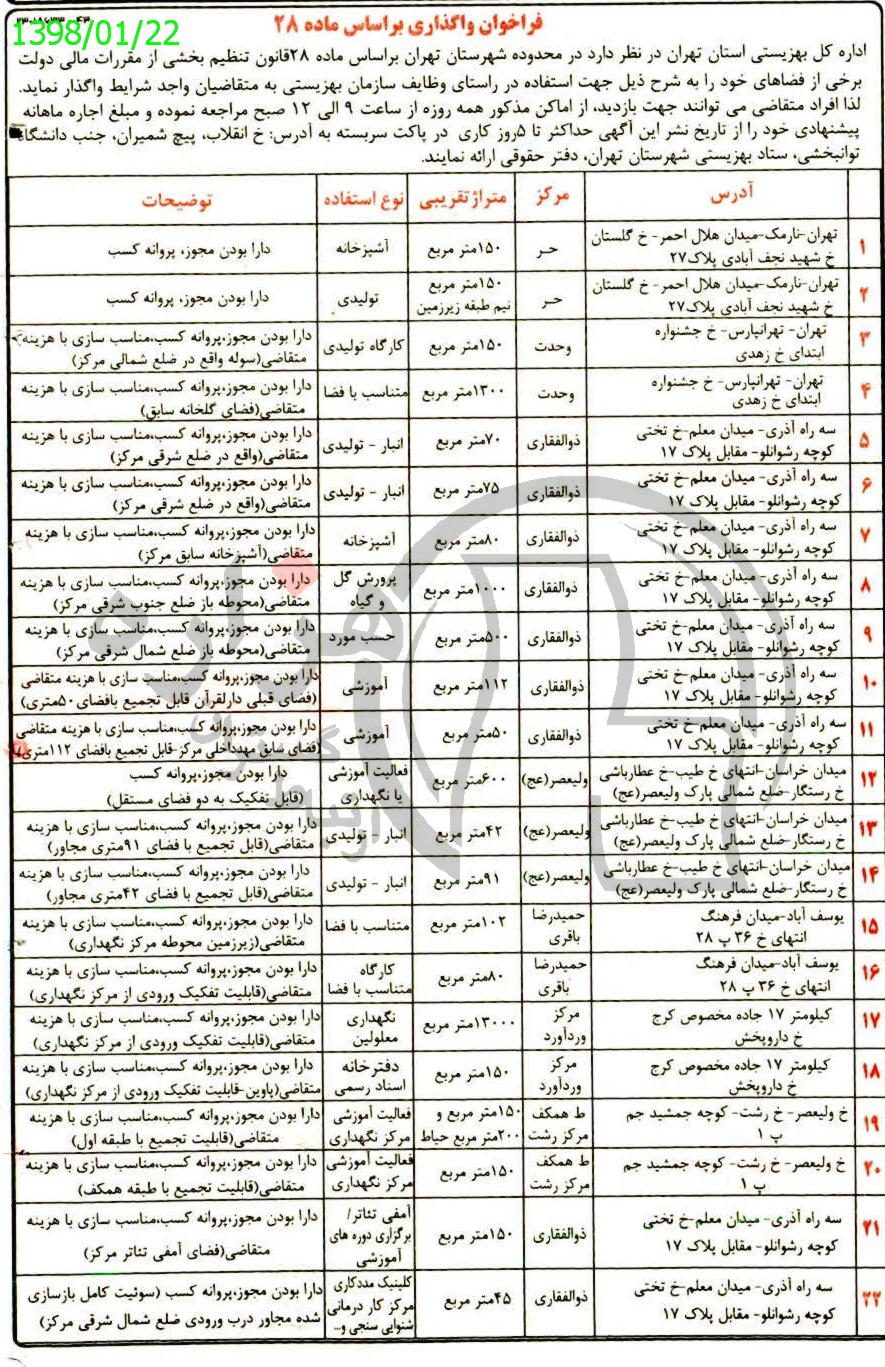 ۲۳۰۱۸۶۳۳-۴۳
1398/01/22
فراخوان واگذاری براساس ماده ۲۸
اداره کل بهزیستی استان تهران در نظر دارد در محدوده شهرستان تهران براساس ماده ۲۸قانون تنظیم بخشی از مقررات مالی دولت
برخی از فضاهای خود را به شرح ذیل جهت استفاده در راستای وظایف سازمان بهزیستی به متقاضیان واجد شرایط واگذار نماید.
لذا افراد متقاضی می توانند جهت بازدید، از اماکن مذکور همه روزه از ساعت ۹ الی ۱۲ صبح مراجعه نموده و مبلغ اجاره ماهانه
پیشنهادی خود را از تاریخ نشر این آگهی حداکثر تا ۵روز کاری در پاکت سربسته به آدرس: خ انقلاب، پیچ شمیران، جنب دانشگاه
توانبخشی، ستاد بهزیستی شهرستان تهران، دفتر حقوقی ارائه نمایند.
آدرس مرکز متراژتقریبی نوع استفاده توضیحات
۱ تهران-نارمک-میدان هلال احمر- خ گلستان
خ شهید نجف آبادی پلاک۲۷ حـر ۱۵۰متر مربع آشپزخانه دارا بودن مجوز، پروانه کسب
۲ تهران-نارمک-میدان هلال احمر- خ گلستان ۱۵۰متر مربع
خ شهید نجف آبادی پلاک۲۷ حـر نیم طبقه زیرزمین تولیدی دارا بودن مجوز، پروانه کسب
۳ تهران- تهرانپارس- خ جشنواره دارا بودن مجوز،پروانه کسب،مناسب سازی با هزینه
ابتدای خ زهدی وحدت ۱۵۰متر مربع کارگاه تولیدی متقاضی(سوله واقع در ضلع شمالی مرکز)
۴ تهران- تهرانپارس- خ جشنواره دارا بودن مجوز،پروانه کسب،مناسب سازی با هزینه
ابتدای خ زهدی وحدت ۱۳۰۰متر مربع متناسب با فضا متقاضی(فضای گلخانه سابق)
۵ سه راه آذری- میدان معلم-خ تختی دارا بودن مجوز،پروانه کسب،مناسب سازی با هزینه
کوچه رشوانلو- مقابل پلاک ۱۷ ذوالفقاری ۷۰متر مربع انبار - تولیدی متقاضی(واقع در ضلع شرقی مرکز)
۶ سه راه آذری- میدان معلم-خ تختی دارا بودن مجوز،پروانه کسب،مناسب سازی با هزینه
کوچه رشوانلو- مقابل پلاک ۱۷ ذوالفقاری ۷۵متر مربع انبار - تولیدی متقاضی(واقع در ضلع شرقی مرکز)
۷ سه راه آذری- میدان معلم-خ تختی دارا بودن مجوز،پروانه کسب،مناسب سازی با هزینه
کوچه رشوانلو- مقابل پلاک ۱۷ ذوالفقاری ۸۰متر مربع آشپزخانه متقاضی(آشپزخانه سابق مرکز)
۸ سه راه آذری- میدان معلم-خ تختی پرورش گل دارا بودن مجوز،پروانه کسب،مناسب سازی با هزینه
کوچه رشوانلو- مقابل پلاک ۱۷ ذوالفقاری ۱۰۰۰متر مربع و گیاه متقاضی(محوطه باز ضلع جنوب شرقی مرکز)
۹ سه راه آذری- میدان معلم-خ تختی دارا بودن مجوز،پروانه کسب،مناسب سازی با هزینه
کوچه رشوانلو- مقابل پلاک ۱۷ ذوالفقاری ۵۰۰متر مربع حسب مورد متقاضی(محوطه باز ضلع شمال شرقی مرکز)
۱۰ سه راه آذری- میدان معلم-خ تختی دارا بودن مجوز،پروانه کسب،مناسب سازی با هزینه متقاضی
کوچه رشوانلو- مقابل پلاک ۱۷ ذوالفقاری ۱۱۲متر مربع آموزشی (فضای قبلی دارلقرآن قابل تجمیع بافضای ۵۰متری)
۱۱ سه راه آذری- میدان معلم-خ تختی دارا بودن مجوز،پروانه کسب،مناسب سازی با هزینه متقاضی
کوچه رشوانلو- مقابل پلاک ۱۷ ذوالفقاری ۵۰متر مربع آموزشی (فضای سابق مهدداخلی مرکز-قابل تجمیع بافضای ۱۱۲متری)
۱۲ میدان خراسان-انتهای خ طیب-خ عطارباشی فعالیت آموزشی دارا بودن مجوز،پروانه کسب
خ رستگار-ضلع شمالی پارک ولیعصر(عج) ولیعصر(عج) ۶۰۰متر مربع یا نگهداری (قابل تفکیک به دو فضای مستقل)
۱۳ میدان خراسان-انتهای خ طیب-خ عطارباشی دارا بودن مجوز،پروانه کسب،مناسب سازی با هزینه
خ رستگار-ضلع شمالی پارک ولیعصر(عج) ولیعصر(عج) ۴۲متر مربع انبار - تولیدی متقاضی(قابل تجمیع با فضای ۹۱متری مجاور)
۱۴ میدان خراسان-انتهای خ طیب-خ عطارباشی دارا بودن مجوز،پروانه کسب،مناسب سازی با هزینه
خ رستگار-ضلع شمالی پارک ولیعصر(عج) ولیعصر(عج) ۹۱متر مربع انبار - تولیدی متقاضی(قابل تجمیع با فضای ۴۲متری مجاور)
۱۵ یوسف آباد-میدان فرهنگ حمیدرضا دارا بودن مجوز،پروانه کسب،مناسب سازی با هزینه
انتهای خ ۳۶ پ ۲۸ باقری ۱۰۲متر مربع متناسب با فضا متقاضی(زیرزمین محوطه مرکز نگهداری)
۱۶ یوسف آباد-میدان فرهنگ حمیدرضا کارگاه دارا بودن مجوز،پروانه کسب،مناسب سازی با هزینه
انتهای خ ۳۶ پ ۲۸ باقری ۸۰متر مربع متناسب با فضا متقاضی(قابلیت تفکیک ورودی از مرکز نگهداری)
۱۷ کیلومتر ۱۷ جاده مخصوص کرج مرکز نگهداری دارا بودن مجوز،پروانه کسب،مناسب سازی با هزینه
خ داروپخش وردآورد ۱۳۰۰۰متر مربع معلولین متقاضی(قابلیت تفکیک ورودی از مرکز نگهداری)
۱۸ کیلومتر ۱۷ جاده مخصوص کرج مرکز دفترخانه دارا بودن مجوز،پروانه کسب،مناسب سازی با هزینه
خ داروپخش وردآورد ۱۵۰متر مربع اسناد رسمی متقاضی(پاوین-قابلیت تفکیک ورودی از مرکز نگهداری)
۱۹ خ ولیعصر- خ رشت- کوچه جمشید جم ط همکف ۱۵۰متر مربع و فعالیت آموزشی دارا بودن مجوز،پروانه کسب،مناسب سازی با هزینه
پ ۱ مرکز رشت ۲۰۰متر مربع حیاط مرکز نگهداری متقاضی(قابلیت تجمیع با طبقه اول)
۲۰ خ ولیعصر- خ رشت- کوچه جمشید جم ط همکف فعالیت آموزشی دارا بودن مجوز،پروانه کسب،مناسب سازی با هزینه
پ ۱ مرکز رشت ۱۵۰متر مربع مرکز نگهداری متقاضی(قابلیت تجمیع با طبقه همکف)
۲۱ سه راه آذری- میدان معلم-خ تختی آمفی تئاتر/ دارا بودن مجوز،پروانه کسب،مناسب سازی با هزینه
ذوالفقاری ۱۵۰متر مربع برگزاری دوره های
کوچه رشوانلو- مقابل پلاک ۱۷ آموزشی متقاضی(فضای آمفی تئاتر مرکز)
۲۲ سه راه آذری- میدان معلم-خ تختی کلینیک مددکاری دارا بودن مجوز،پروانه کسب (سوئیت کامل بازسازی
ذوالفقاری ۴۵متر مربع مرکز کار درمانی
کوچه رشوانلو- مقابل پلاک ۱۷ شنوایی سنجی و... شده مجاور درب ورودی ضلع شمال شرقی مرکز)